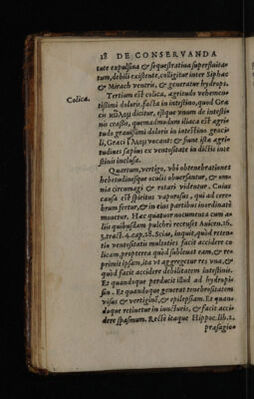 18 DE CONSERVANDA
tute expulsiua & sequestratiua superfluita-
tum, debili existente, colligitur inter Siphac
& Mirach ventris, & generatur hydrops.
Colica.
Tertium est colica, agritudo vehemen-
tissimi doloris, facta in intestino, quod Græ
cis κῶλον dicitur, estque vnum de intesti-
nis crassis, quemadmodum iliaca est agri-
tudo grauissimi doloris in intestino graci-
li, Græci vocant: & sunt istæ agri-
tudines sæpius ex ventositate in dictis inte
stinis inclusa.
Quartum, vertigo, vbi obtenebrationes
hebetudinesque oculis obuersantur, & om-
nia circumagi & rotari videntur. Cuius
causa est spiritus vaporosus, qui ad cere-
brum fertur, & in eius partibus inordinatè
mouetur. Hæc quatuor nocumenta cum a-
liis quibusdam pulchrè recenset Auicen. 16.
3. tract. 4. cap. 28. Scias, inquit, quòd reten-
tio ventositatis multoties facit accidere co-
licam, propterea quòd subleuat eam, & re-
primit ipsam, ita vt aggregetur res vna, &
quòd facit accidere debilitatem intestinis.
Et quandoque perducit illud ad hydropi-
sin. Et quandoque generat tenebrositatem
visus & vertiginē, & epilepsiam. Et quan-
doque retinetur in iuncturis, & facit acci-
dere spasmum. Rectè itaque Hippoc. lib. 2.
præsagio-